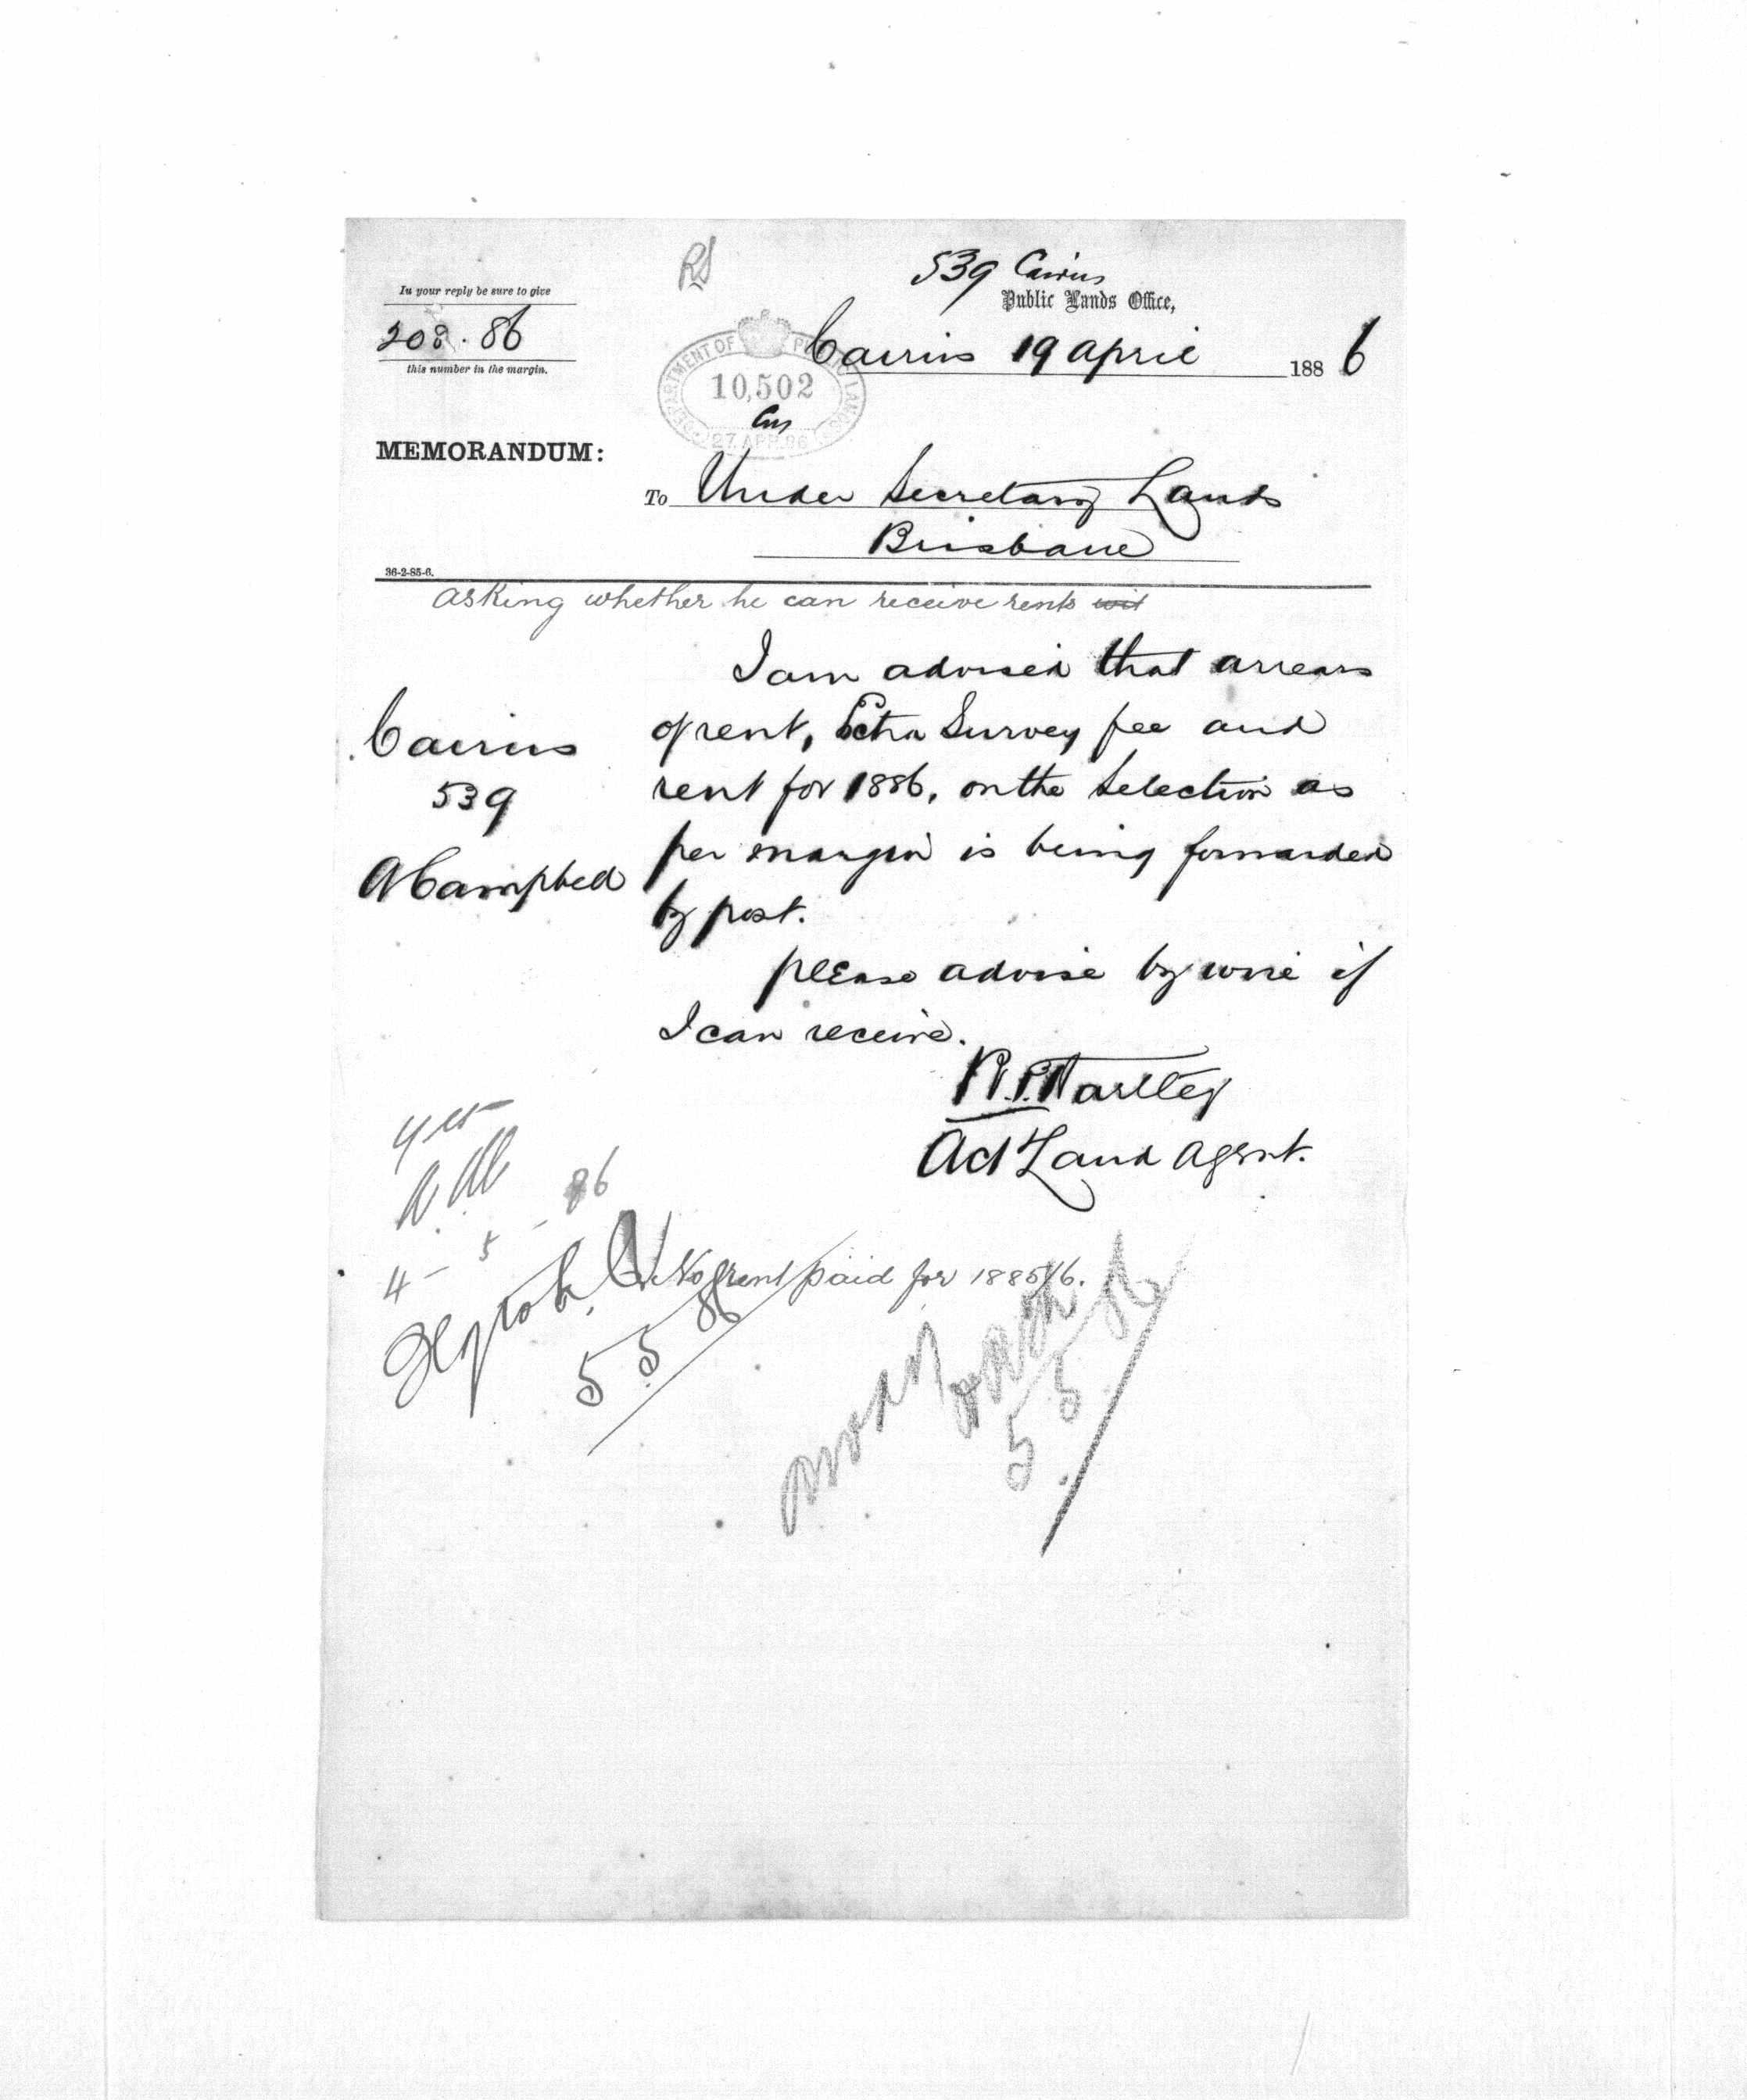 RS
539 Cairns
In your reply be sure to give
Public Lands Office,
208.86
Cairns 19 April 1886
this number in the margin.
DEPARTMENT OF PUBLIC LANDS
10,502
27 APR 86
MEMORANDUM:
To Under Secretary Lands
Brisbane
36-2-85-6.
asking whether he can receive rents wit
I am advised that arrears
Cairns
of rent, Extra Survey fee and
539
rent for 1886, on the Selection as
A Campbell
per margin is being forwarded
by post.
please advise by wire if
I can receive.
R.P. Hartley
Act Land Agent.
yes
4-5-86
No rent paid for 1885/6.
5 5 86
5 5 86